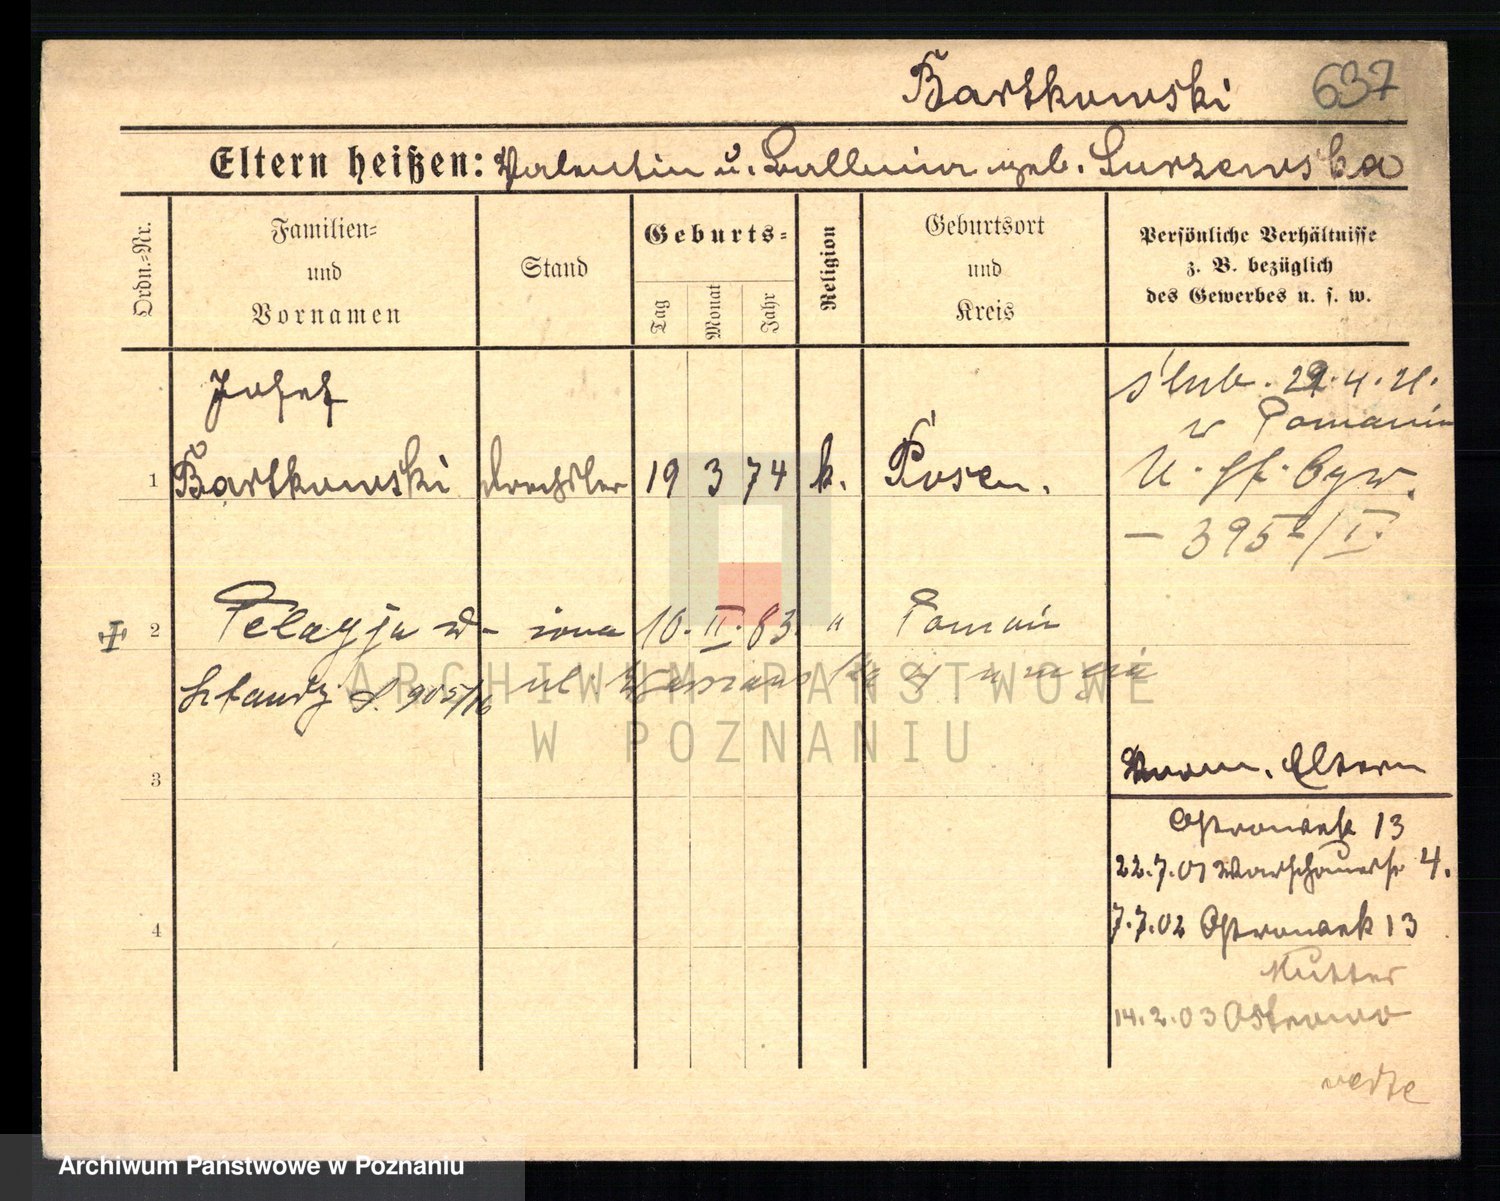 Bartkowski 637
Eltern heißen: Valentin u. geb. Surzewska
Ordn.-Nr.
Familien- und Vornamen
Stand
Geburts-
Tag
Monat
Jahr
Religion
Geburtsort und Kreis
Persönliche Verhältnisse
z. B. bezüglich
des Gewerbes u. s. w.
Josef
1 Bartkowski Drechsler 19 3 74 k. Posen.
ślub. 29.4.21.
w Poznaniu
- 395 /I.
2 Pelagja 10. II. 83. " Poznań
ARCHIWUM PAŃSTWOWE
W POZNANIU
3
Eltern
Ostrowek 13
22.7.01 Warschauerstr 4.
4
7.7.02 Ostrowek 13
Mutter
14.2.03 Ostrowo
verte
Archiwum Państwowe w Poznaniu